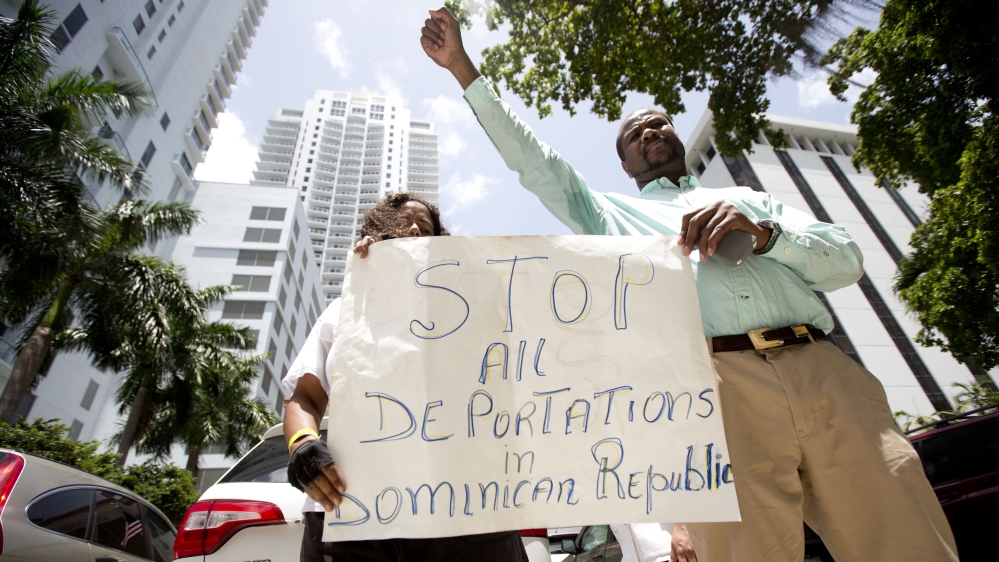 STOP
All
DEPORTATIONS
in
DOMINICAN Republic